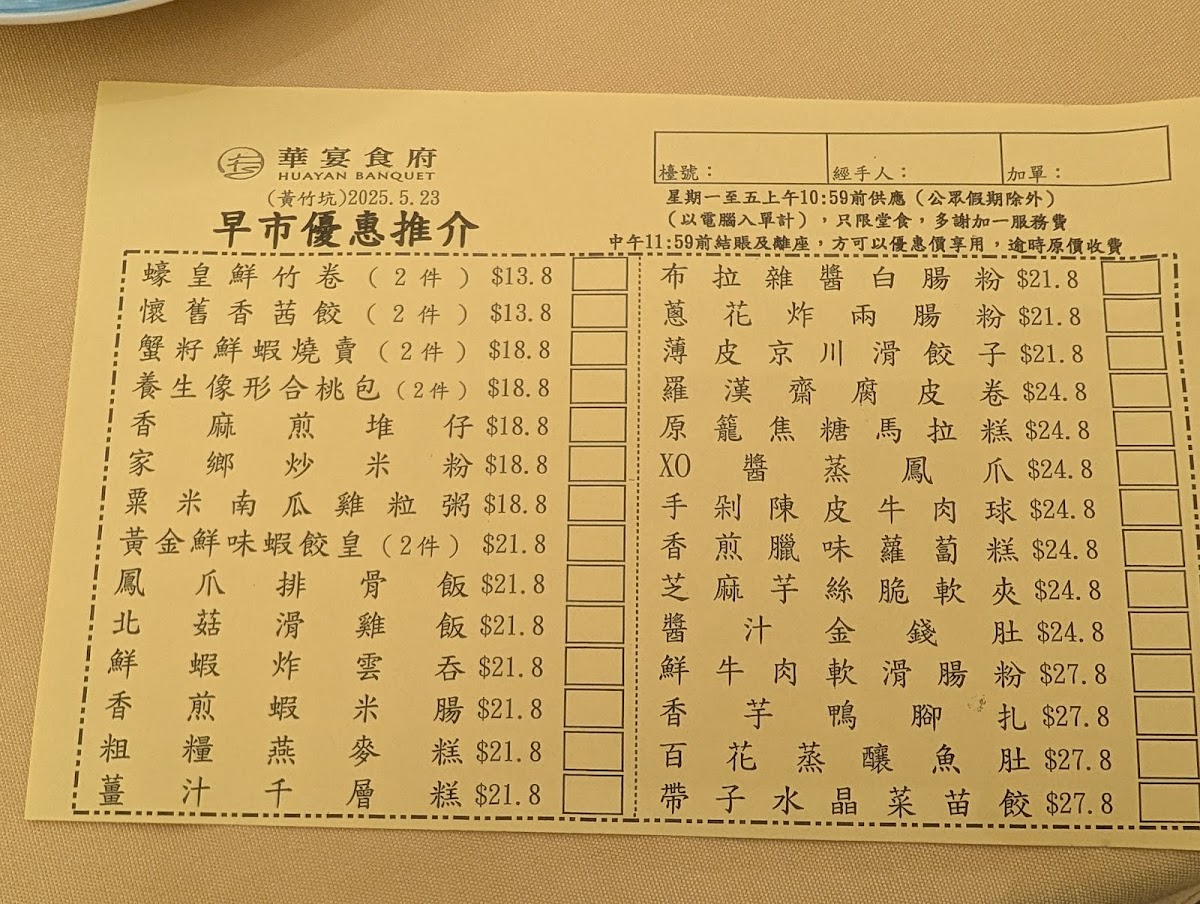 華宴食府
HUAYAN BANQUET
(黃竹坑)2025.5.23
早市優惠推介
檯號：
經手人：
加單：
星期一至五上午10:59前供應（公眾假期除外）
（以電腦入單計），只限堂食，多謝加一服務費
中午11:59前結賬及離座，方可以優惠價享用，逾時原價收費
蠔皇鮮竹卷（2件）$13.8
懷舊香茜餃（2件）$13.8
蟹籽鮮蝦燒賣（2件）$18.8
養生像形合桃包（2件）$18.8
香麻煎堆仔 $18.8
家鄉炒米粉 $18.8
粟米南瓜雞粒粥 $18.8
黃金鮮味蝦餃皇（2件）$21.8
鳳爪排骨飯 $21.8
北菇滑雞飯 $21.8
鮮蝦炸雲吞 $21.8
香煎蝦米腸 $21.8
粗糧燕麥糕 $21.8
薑汁千層糕 $21.8
布拉雜醬白腸粉 $21.8
蔥花炸兩腸粉 $21.8
薄皮京川滑餃子 $21.8
羅漢齋腐皮卷 $24.8
原籠焦糖馬拉糕 $24.8
XO醬蒸鳳爪 $24.8
手剁陳皮牛肉球 $24.8
香煎臘味蘿蔔糕 $24.8
芝麻芋絲脆軟夾 $24.8
醬汁金錢肚 $24.8
鮮牛肉軟滑腸粉 $27.8
香芋鴨腳扎 $27.8
百花蒸釀魚肚 $27.8
帶子水晶菜苗餃 $27.8